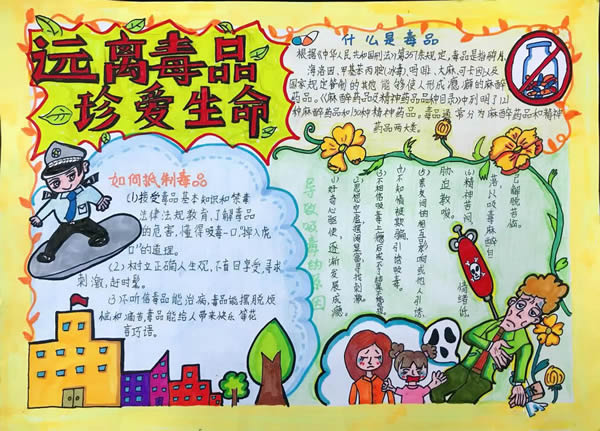 远离毒品
珍爱生命
什么是毒品
根据《中华人民共和国刑法》第357条规定,毒品是指鸦片、
海洛因、甲基苯丙胺(冰毒)、吗啡、大麻、可卡因以及
国家规定管制的其他能够使人形成瘾癖的麻醉
药品。《麻醉药品及精神药品品种目录》中列明了121
种麻醉药品和130种精神药品。毒品通常分为麻醉药品和精神
药品两大类。
如何抵制毒品
(1)接受毒品基本知识和禁毒
法律法规教育,了解毒品
的危害,懂得"吸毒一口,掉入虎
口"的道理。
(2)树立正确人生观,不盲目享受,寻求
刺激,赶时髦。
(3)不听信毒品能治病,毒品能摆脱烦
恼和痛苦,毒品能给人带来快乐等花
言巧语。
导致吸毒的原因
(1)好奇心驱使,逐渐发展成瘾。
(2)思想空虚,寻找刺激。
(3)不相信吸毒上瘾
(4)不知情被欺骗,引诱吸毒。
(5)亲友间的相互影响或他人引诱、
胁迫教唆。
(6)精神苦闷、情绪低
落,以吸毒麻醉自
己解脱苦恼。